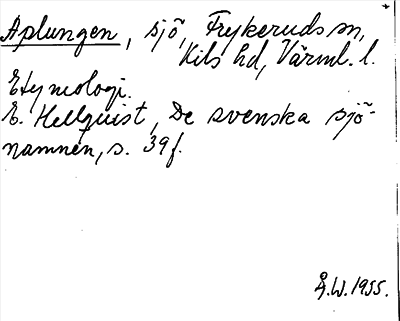 Aplungen, sjö, Frykeruds sn,
Kils hd, Värml. l.
Etymologi.
E. Hellquist, De svenska sjö-
namnen, s. 39f.
Å.W. 1955.